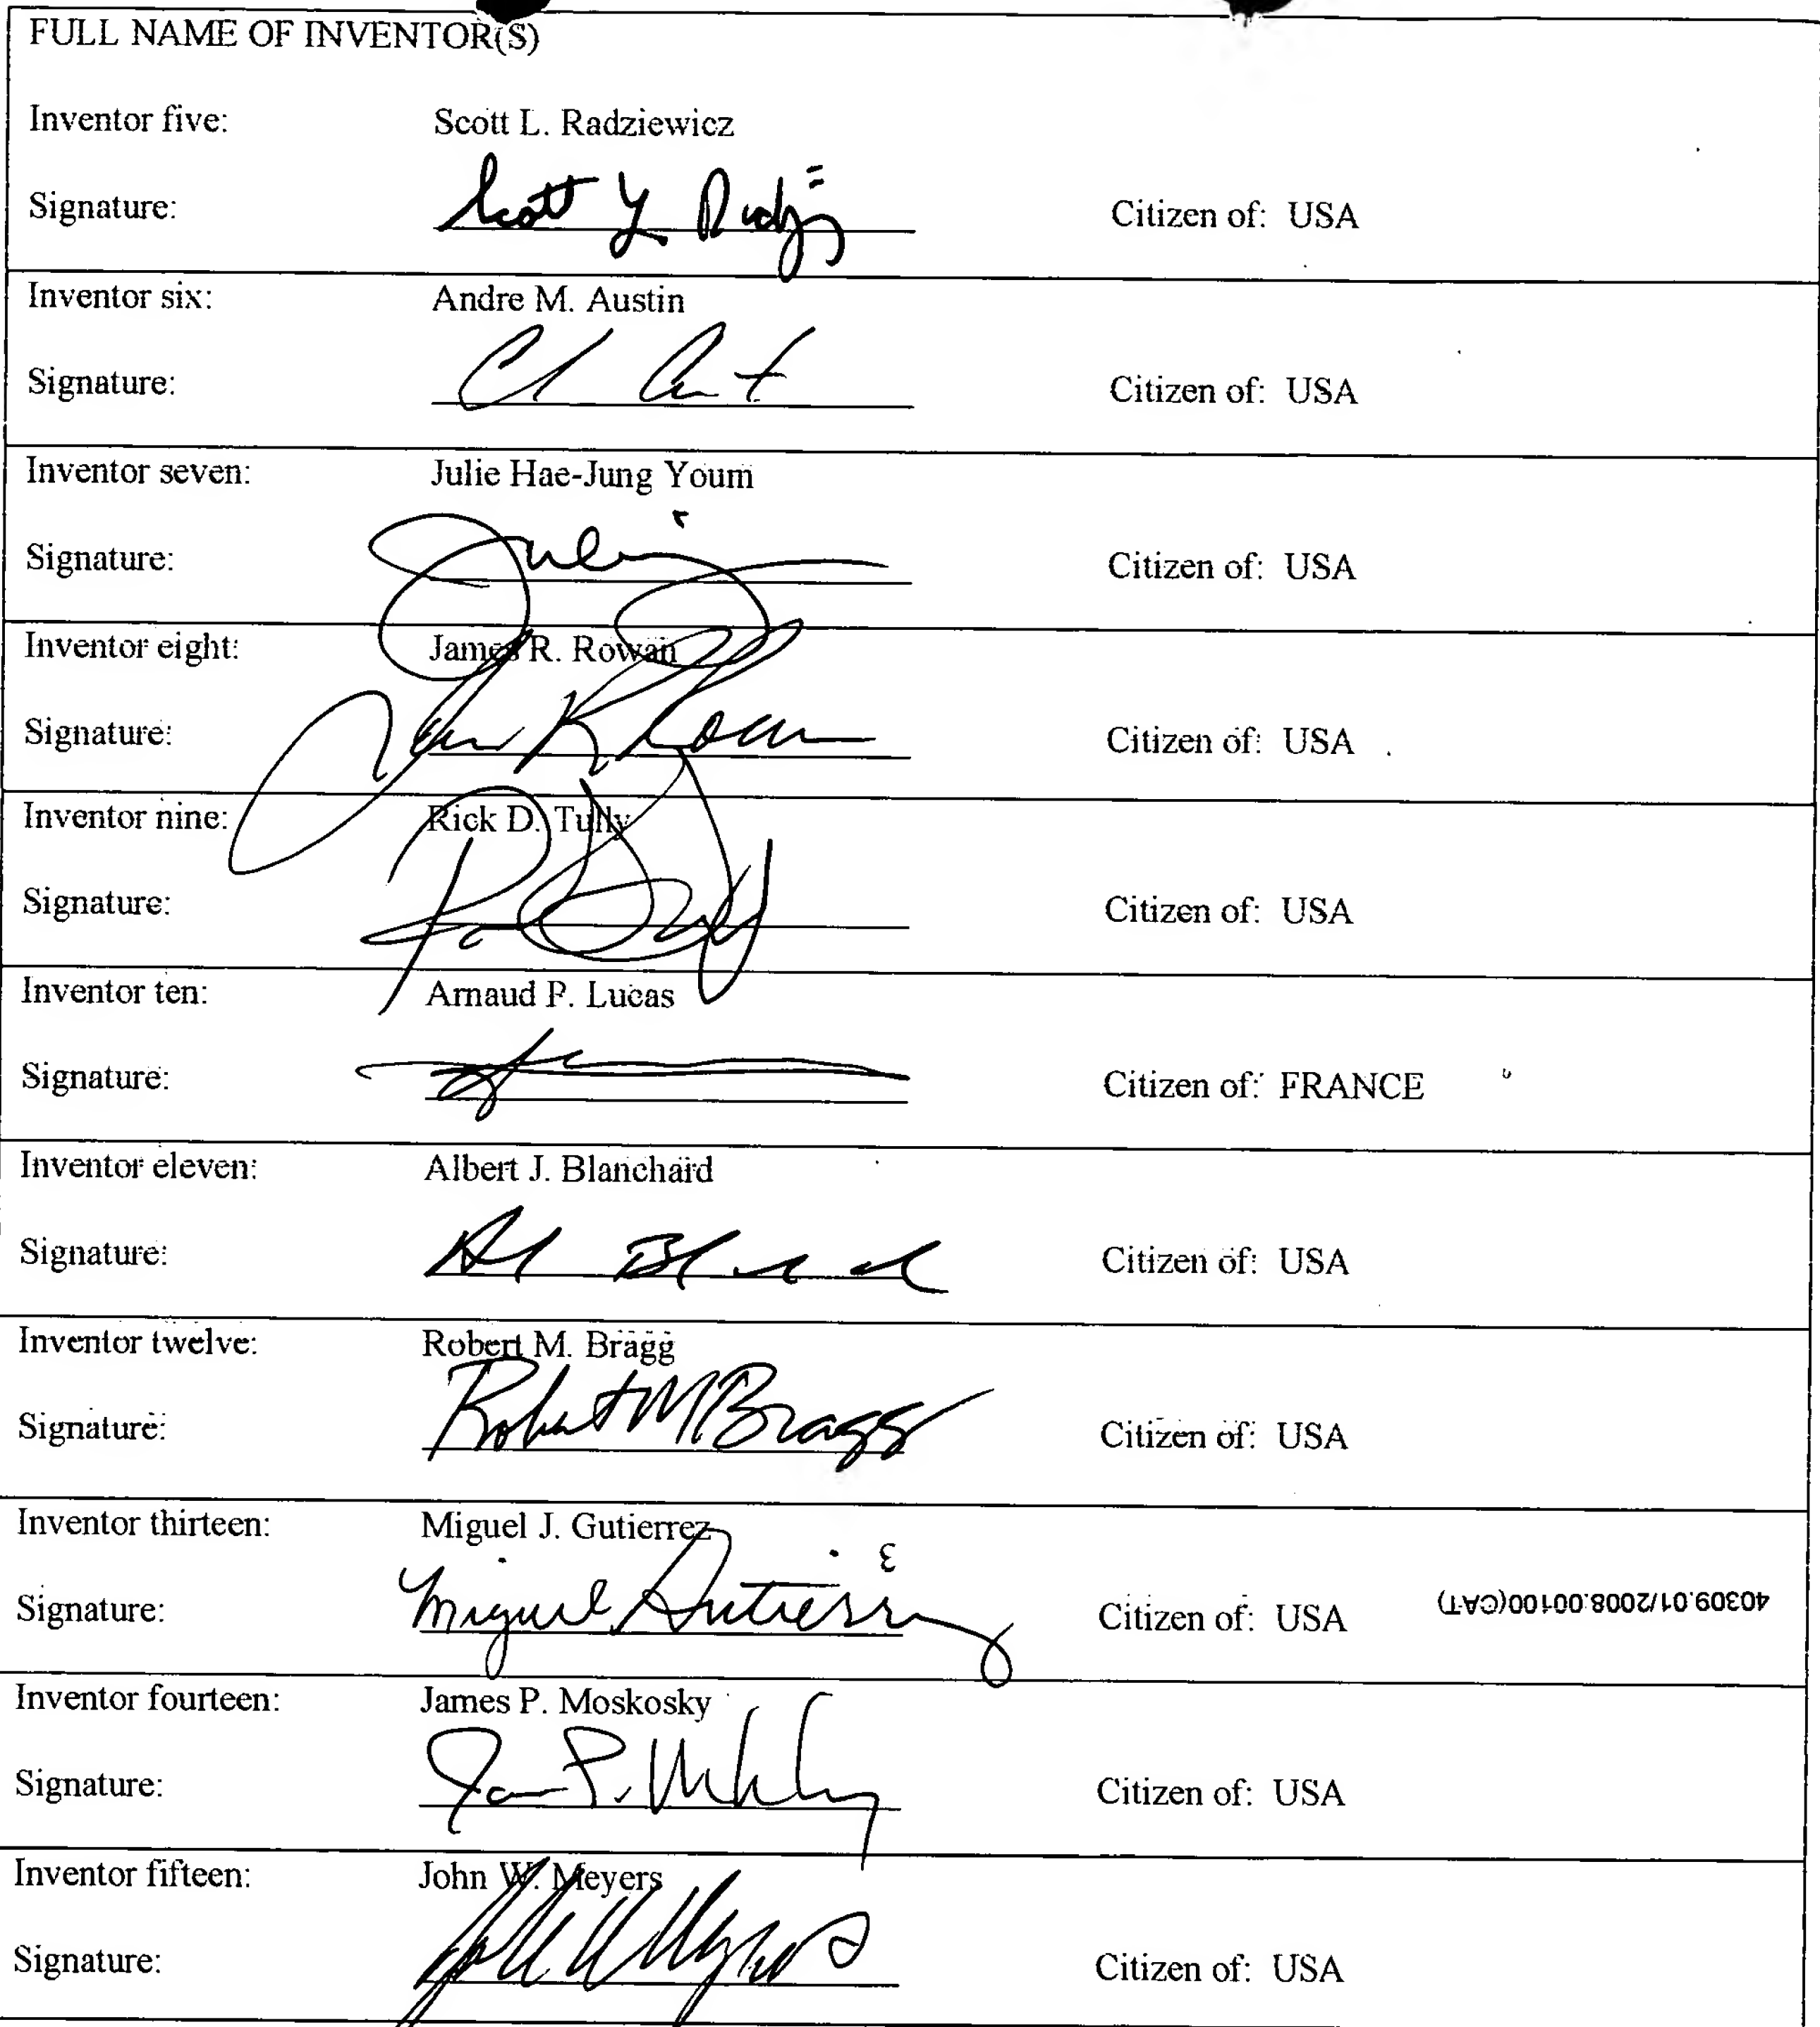 FULL NAME OF INVENTOR(S)
Inventor five: Scott L. Radziewicz
Signature: Scott L Citizen of: USA
Inventor six: Andre M. Austin
Signature: Citizen of: USA
Inventor seven: Julie Hae-Jung Youm
Signature: Julie Citizen of: USA
Inventor eight: James R. Rowan
Signature: James R Rowan Citizen of: USA
Inventor nine: Rick D. Tully
Signature: Citizen of: USA
Inventor ten: Arnaud P. Lucas
Signature: Citizen of: FRANCE
Inventor eleven: Albert J. Blanchard
Signature: Citizen of: USA
Inventor twelve: Robert M. Bragg
Signature: Robert M Bragg Citizen of: USA
Inventor thirteen: Miguel J. Gutierrez
Signature: Miguel Gutierrez Citizen of: USA 40309.01/2008.00100(CAT)
Inventor fourteen: James P. Moskosky
Signature: Citizen of: USA
Inventor fifteen: John W. Meyers
Signature: John W Meyers Citizen of: USA